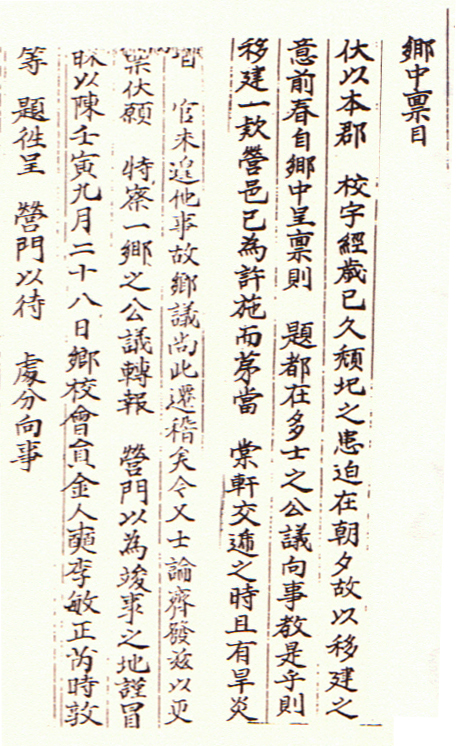 鄕中稟目
伏以本郡 校宇經歲已久頹圮之患迫在朝夕故以移建之
意前春自鄕中呈稟則 題都在多士之公議向事敎是乎則
移建一款營邑已爲許施而第當 棠軒交遞之時且有旱炎
官未遑他事故鄕議尙此遷稽矣今又士論齊發玆以更
稟伏願 特察一鄕之公議轉報 營門以爲竣事之地謹冒
昧以陳壬寅九月二十八日鄕校會員金人奭李敏正芮時敦
等 題徃呈 營門以待 處分向事